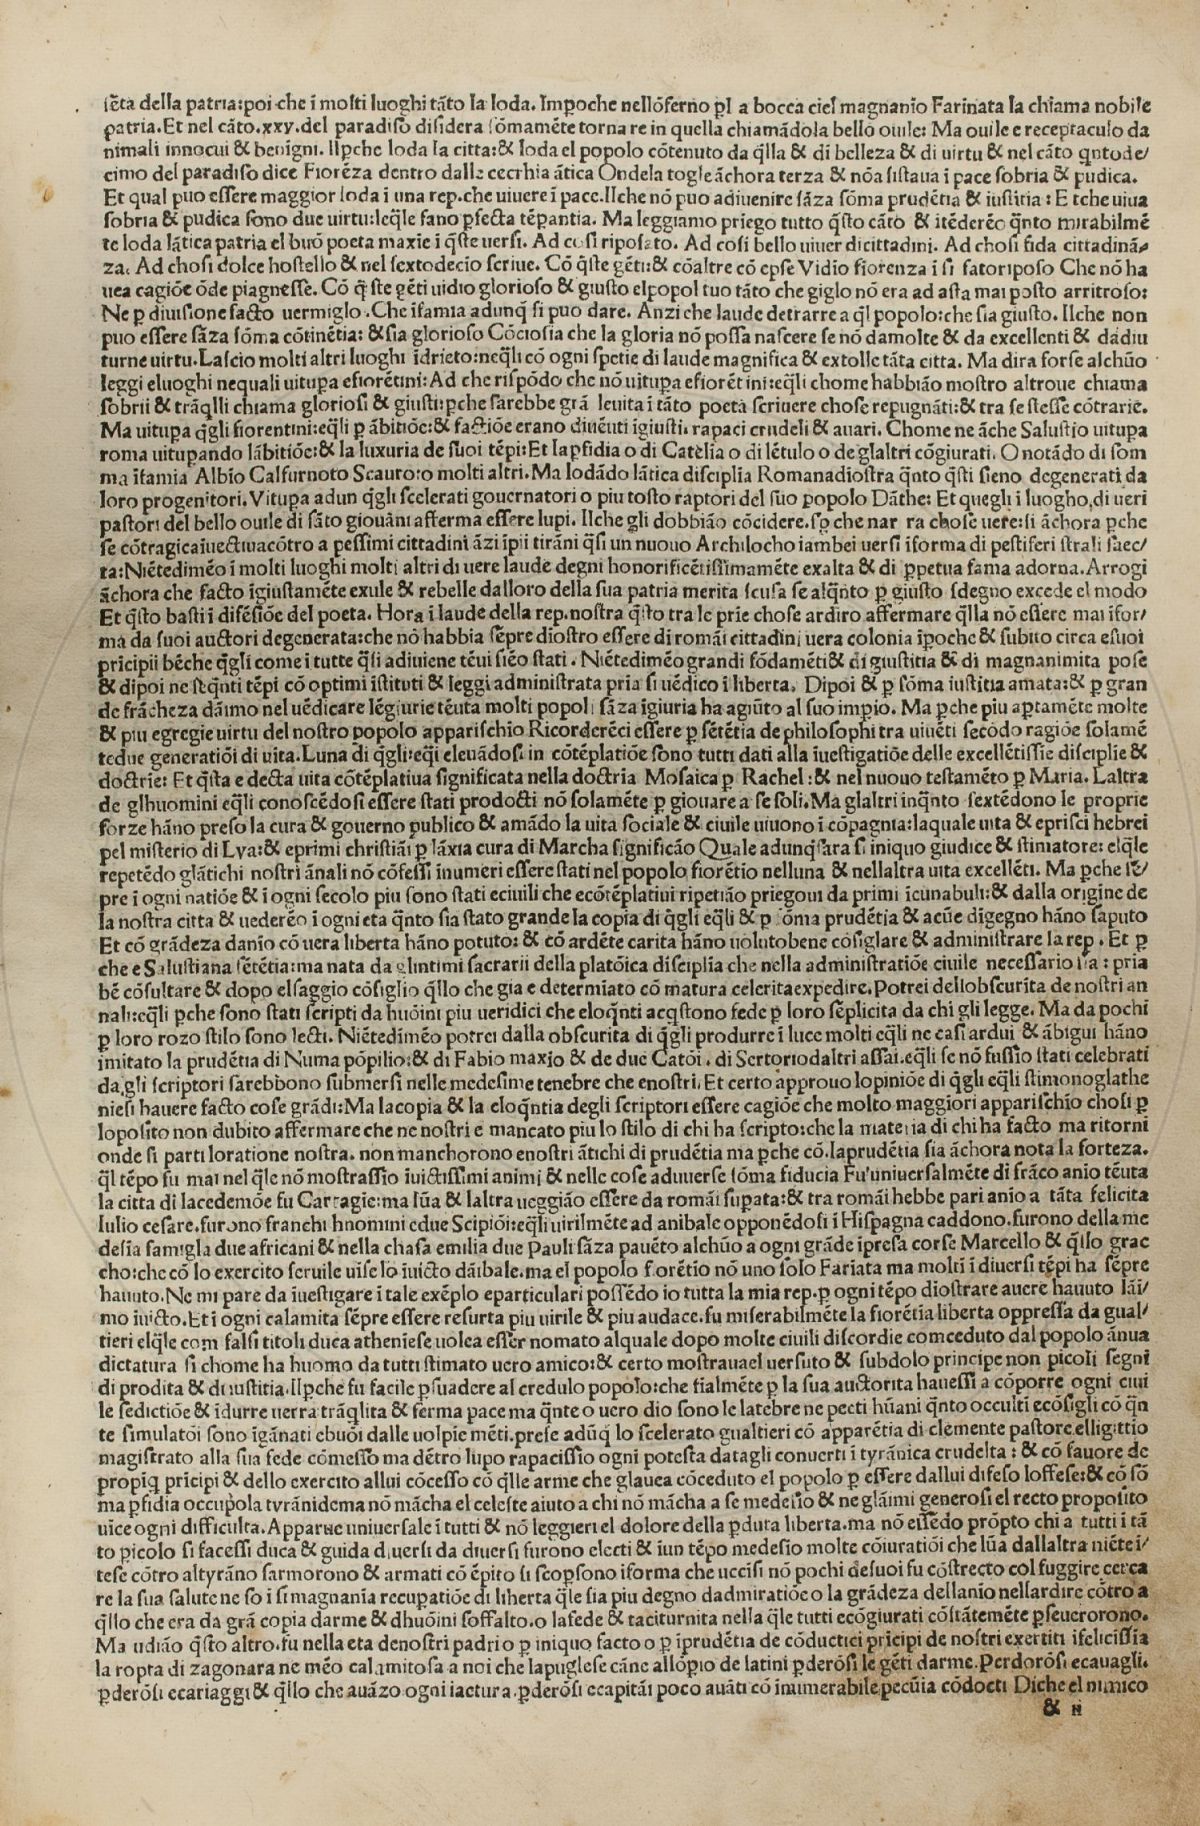 sēta della patria:poi che ī molti luoghi tāto la loda. Impoche nellōferno ꝑl a bocca ciel magnanio Farinata la chiama nobile
ꝑatria. Et nel cāto.xxv.del paradiso disidera sōmamēte torna re in quella chiamādola bello ouile: Ma ouile e receptaculo da
nimali innocui & benigni. Ilꝑche loda la citta:& loda el popolo cōtenuto da q̄lla & di belleza & di uirtu & nel cāto quntode/
cimo del paradiso dice Fiorēza dentro dalla cecrhia ātica Ondela togle āchora terza & nōa sistaua ī pace sobria & pudica.
Et qual puo essere maggior loda ī una rep.che uiuere ī pace.Ilche nō puo adiuenire sāza sōma prudētia & iustitia: E tche uiua
sobria & pudica sono due uirtu:leq̄le fano ꝑfecta tēpantia. Ma leggiamo priego tutto q̄sto cāto & itēderēo q̄nto mirabilmē
te loda lātica patria el buō poeta maxie ī q̄ste uersi. Ad cosi riposato. Ad cosi bello uiuer dicittadini. Ad chosi fida cittadinā/
za. Ad chosi dolce hostello & nel sextodecio scriue. Cō q̄ste gēti:& cōaltre cō epse Vidio fiorenza ī si fatoriposo Che nō ha
uea cagiōe ōde piagnesse. Cō q̄ ste gēti uidio glorioso & giusto elpopol tuo tāto che giglo nō era ad asta mai posto arritroso:
Ne ꝑ diuisione facto uermiglo. Che īfamia adunq̄ si puo dare. Anzi che laude detrarre a q̄l popolo:che sia giusto. Ilche non
puo essere sāza sōma cōtinētia: & sia glorioso Cōciosia che la gloria nō possa nascere se nō damolte & da excellenti & dadiu
turne uirtu. Lascio molti altri luoghi īdrieto:neq̄li cō ogni spetie di laude magnifica & extolle tāta citta. Ma dira forse alchūo
leggi eluoghi nequali uitupa efiorētini: Ad che rispōdo che nō uitupa efiorēt ini:eq̄li chome habbiāo mostro altroue chiama
sobrii & trāq̄lli chiama gloriosi & giusti:ꝑche sarebbe grā leuita ī tāto poeta scriuere chose repugnāti:& tra se stesse cōtrarie.
Ma uitupa q̄gli fiorentini:eq̄li ꝑ ābitiōe:& factiōe erano diuēuti īgiusti. rapaci crudeli & auari. Chome ne āche Salustio uitupa
roma uitupando lābitiōe:& la luxuria de suoi tēpi: Et laꝑfidia o di Catēlia o di lētulo o de glaltri cōgiurati. O notādo di som
ma īfamia Albio Calfurnoto Scauro:o molti altri. Ma lodādo lātica disciplia Romanadiostra q̄nto q̄sti sieno degenerati da
loro progenitori. Vitupa adun q̄gli scelerati gouernatori o piu tosto raptori del suo popolo Dāthe: Et quegli ī luogho,di ueri
pastori del bello ouile di sāto giouāni afferma essere lupi. Ilche gli dobbiāo cōcidere. che nar ra chose uere:si āchora ꝑche
se cōtragicaīuectiuacōtro a pessimi cittadini āzi īpii tirāni q̄si un nuouo Archilocho iambei uersi īforma di pestiferi strali saec/
ta:Niētedimēo ī molti luoghi molti altri di uere laude degni honorificētissimamēte exalta & di ꝑpetua fama adorna. Arrogi
āchora che facto īgiustamēte exule & rebelle dalloro della sua patria merita scusa se alq̄nto ꝑ giusto sdegno excede el modo
Et q̄sto basti ī difēsiōe del poeta. Hora ī laude della rep.nostra q̄sto tra le prie chose ardiro affermare q̄lla nō essere mai īfor/
ma da suoi auctori degenerata:che nō habbia sēpre diostro essere di romāi cittadini uera colonia īpoche & subito circa esuoi
prīcipii bēche q̄gli come ī tutte q̄si adiuiene tēui siēo stati. Niētedimēo grandi fōdamēti& di giustitia & di magnanimita pose
& dipoi ne seq̄nti tēpi cō optimi īstituti & leggi administrata pria si uēdico ī liberta. Dipoi & ꝑ sōma iustitia amata:& ꝑ gran
de frācheza dāimo nel uēdicare lēgiurie tēuta molti popoli sāza īgiuria ha agiūto al suo impio. Ma ꝑche piu aꝑtamēte molte
& piu egregie uirtu del nostro popolo apparischio Ricorderēci essere ꝑ sētētia de philosophi tra uiuēti secōdo ragiōe solamē
tedue generatiōi di uita. Luna di q̄gli:eq̄i eleuādosi.in cōtēplatiōe sono tutti dati alla īuestigatiōe delle excellētissie disciplie &
doctrie: Et q̄sta e decta uita cōtēplatiua significata nella doctria Mosaica ꝑ Rachel:& nel nuouo testamēto ꝑ Maria. Laltra
de glhuomini eq̄li conoscēdosi essere stati prodocti nō solamēte ꝑ giouare a se soli. Ma glaltri inq̄nto sextēdono le proprie
forze hāno preso la cura & gouerno publico & amādo la uita sociale & ciuile uiuono ī cōpagnia:laquale uita & eprisci hebrei
pel misterio di Lya:& eprimi christiāi ꝑ lāxia cura di Marcha significāo Quale adunq̄sara si iniquo giudice & stimatore: elq̄le
repetēdo glātichi nostri ānali nō cōfessi inumeri essere stati nel popolo fiorētio nelluna & nellaltra uita excellēti. Ma ꝑche sē/
pre ī ogni natiōe & ī ogni secolo piu sono stati eciuili che ecōtēplatiui ripetiāo priegoui da primi īcunabuli:& dalla origine de
la nostra citta & uederēo ī ogni eta q̄nto sia stato grande la copia di q̄gli eq̄li & ꝑ sōma prudētia & acūe dīgegno hāno saputo
Et cō grādeza danio cō uera liberta hāno potuto: & cō ardēte carita hāno uolutobene cōsiglare & administrare la rep. Et ꝑ
che e Salustiana sētētia:ma nata da glintimi sacrarii della platōica disciplia che nella administratiōe ciuile necessario sia: pria
bē cōsultare & dopo elsaggio cōsiglio q̄llo che gia e determiato cō matura celeritaexpedire. Potrei dellobscurita de nostri an
nali:eq̄li ꝑche sono stati scripti da huōini piu ueridici che eloq̄nti acq̄stono fede ꝑ loro sēplicita da chi gli legge. Ma da pochi
ꝑ loro rozo stilo sono lecti. Niētedimēo potrei dalla obscurita di q̄gli produrre ī luce molti eq̄li ne casi ardui & ābigui hāno
imitato la prudētia di Numa pōpilio:& di Fabio maxio & de due Catōi. di Sertoriodaltri assai.eq̄li se nō fussio stati celebrati
da gli scriptori sarebbono submersi nelle medesime tenebre che enostri. Et certo approuo lopiniōe di q̄gli eq̄li stimonoglathe
niesi hauere facto cose grādi:Ma lacopia & la eloq̄ntia degli scriptori essere cagiōe che molto maggiori apparischio chosi ꝑ
loposito non dubito affermare che ne nostri e mancato piu lo stilo di chi ha scripto:che la materia di chi ha facto ma ritorni
onde si parti loratione nostra. non manchorono enostri ātichi di prudētia ma ꝑche cō.laprudētia sia āchora nota la forteza.
q̄l tēpo fu mai nel q̄le nō mostrassio īuictissimi animi & nelle cose aduuerse sōma fiducia Fu'uniuersalmēte di frāco anio tēuta
la citta di lacedemōe fu Cartagie:ma lūa & laltra ueggiāo essere da romāi suꝑata:& tra romāi hebbe pari anio a tāta felicita
Iulio cesare.furono franchi hnomini edue Scipiōi:eq̄li uirilmēte ad anibale opponēdosi ī Hispagna caddono.furono della me
desia famigla due africani & nella chasa emilia due Pauli sāza pauēto alchūo a ogni grāde īpresa corse Marcello & q̄llo grac
cho:che cō lo exercito seruile uise lo īuicto dāibale.ma el popolo fiorētio nō uno solo Fariata ma molti ī diuersi tēpi ha sēpre
hauuto. Ne mi pare da īuestigare ī tale exēplo eparticulari possēdo io tutta la mia rep.ꝑ ogni tēpo diostrare auere hauuto lāi/
mo īuicto. Et ī ogni calamita sēpre essere resurta piu uirile & piu audace.fu miserabilmēte la fiorētia liberta oppressa da gual/
tieri elq̄le com falsi titoli duca atheniese uolea esser nomato alquale dopo molte ciuili discordie comceduto dal popolo ānua
dictatura si chome ha huomo da tutti stimato uero amico:& certo mostrauael uersuto & subdolo principe non picoli segni
di prodita & di iustitia. Ilꝑche fu facile ꝑsuadere al credulo popolo:che fialmēte ꝑ la sua auctorita hauessi a cōporre ogni ciui
le sedictiōe & īdurre uerra trāq̄lita & ferma pace ma q̄nte o uero dio sono le latebre ne pecti hūani q̄nto occulti ecōsigli cō q̄n
te simulatōi sono īgānati ebuōi dalle uolpie mēti.prese adūq̄ lo scelerato gualtieri cō apparētia di clemente pastore.elligittio
magistrato alla sua fede cōmesso ma dētro lupo rapacissio ogni potesta datagli conuerti ī tyrānica crudelta: & cō fauore de
propīq̄ prīcipi & dello exercito allui cōcesso cō q̄lle arme che glauea cōceduto el popolo ꝑ essere dallui difeso loffese:& cō sō
ma ꝑfidia occupola tyrānidema nō mācha el celeste aiuto a chi nō mācha a se medesio & ne glāimi generosi el recto proposito
uīce ogni difficulta. Apparue uniuersale ī tutti & nō leggieri el dolore della ꝑduta liberta.ma nō eissēdo prōpto chi a tutti ī tā
to picolo si facessi duca & guida diuersi da diuersi furono electi & iun tēpo medesio molte cōiuratiōi che lūa dallaltra niēte ī/
tese cōtro altyrāno sarmorono & armati cō ēpito si scopsono īforma che uccisi nō pochi desuoi fu cōstrecto col fuggire cerca
re la sua salute ne so ī si magnania recuꝑatiōe di liberta q̄le sia piu degno dadmiratiōe o la grādeza dellanio nellardire cōtro a
q̄llo che era da grā copia darme & dhuōini soffalto.o lafede & taciturnita nella q̄le tutti ecōgiurati cōstātemēte ꝑseucrorono.
Ma udiāo q̄sto altro.fu nella eta denostri padri o ꝑ iniquo facto o ꝑ īprudētia de cōductici prīcipi de nostri exertiti īfelicissia
la ropta di zagonara ne mēo calamitosa a noi che lapuglese cāne allōpio de latini ꝑderōsi le gēti darme. Perdorōsi ecauagli.
ꝑderōsi ecariaggi & q̄llo che auāzo ogni iactura.ꝑderōsi ecapitāi poco auāti cō inumerabile pecūia cōdocti Diche el nimico
& N